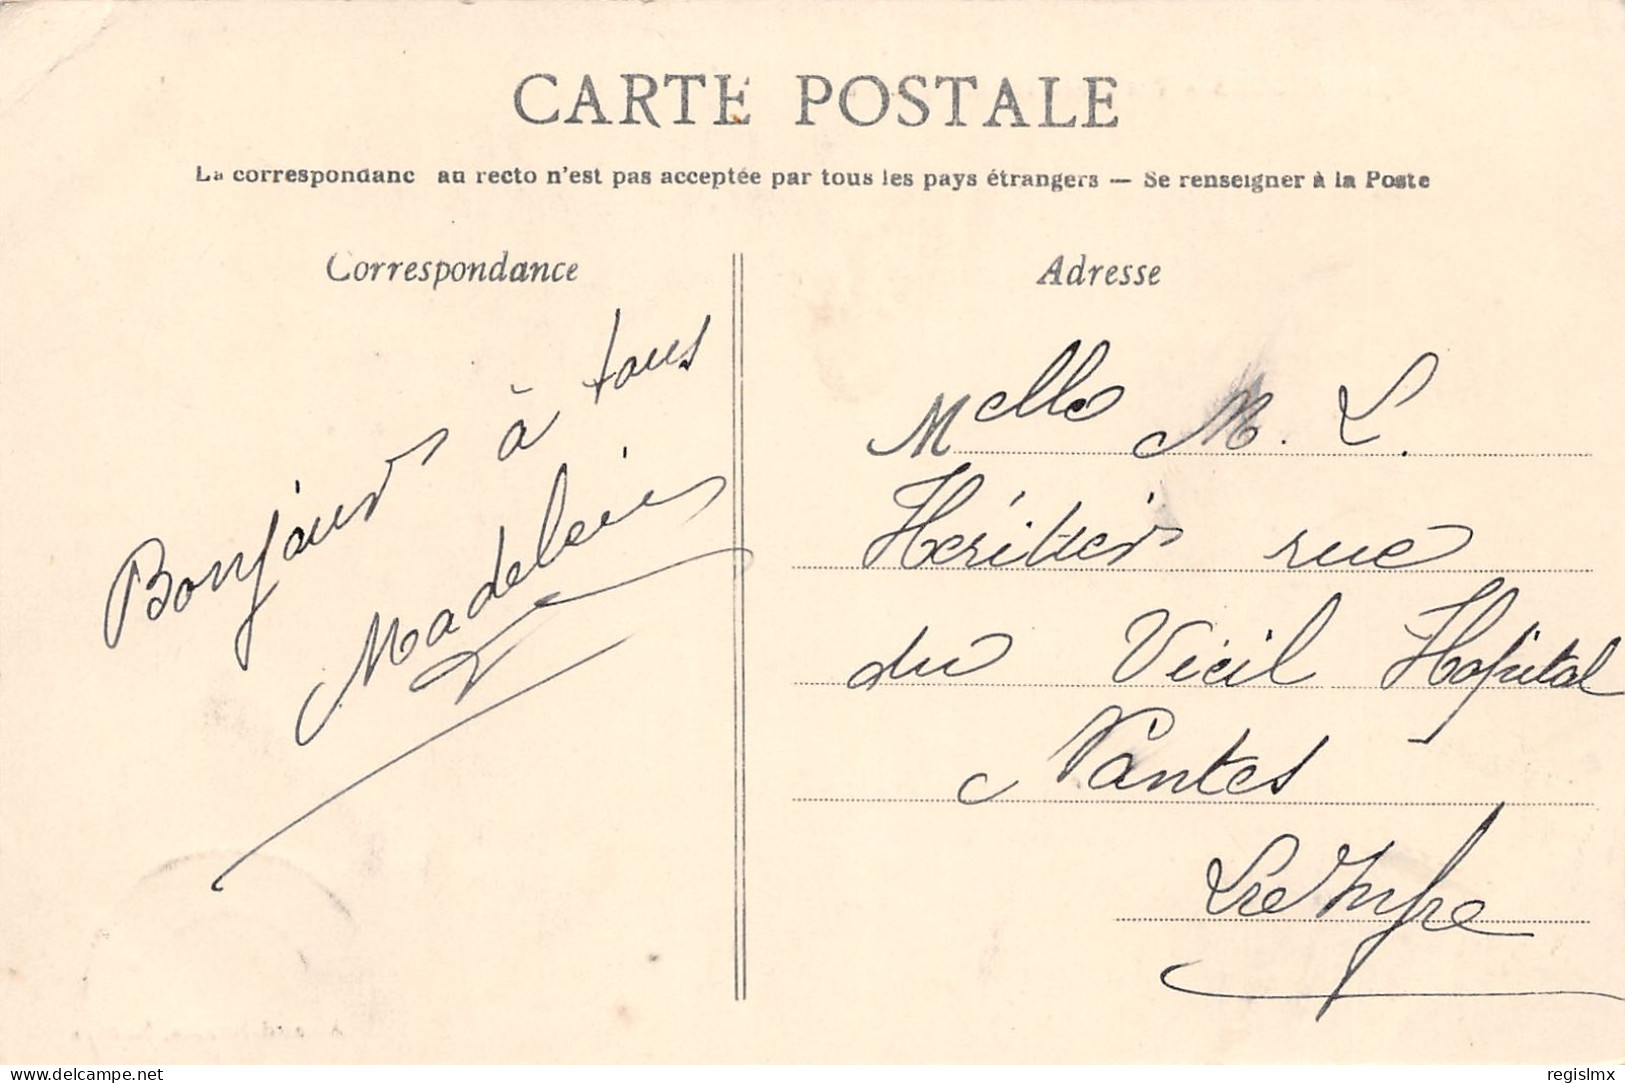 CARTE POSTALE
La correspondanc au recto n'est pas acceptée par tous les pays étrangers — Se renseigner à la Poste
Correspondance
Bonjour à tous
Madeleine
Adresse
Melle M. L.
Héritier rue
du Vieil Hopital
Nantes
Lre Infre
www.delcampe.net
regislmx